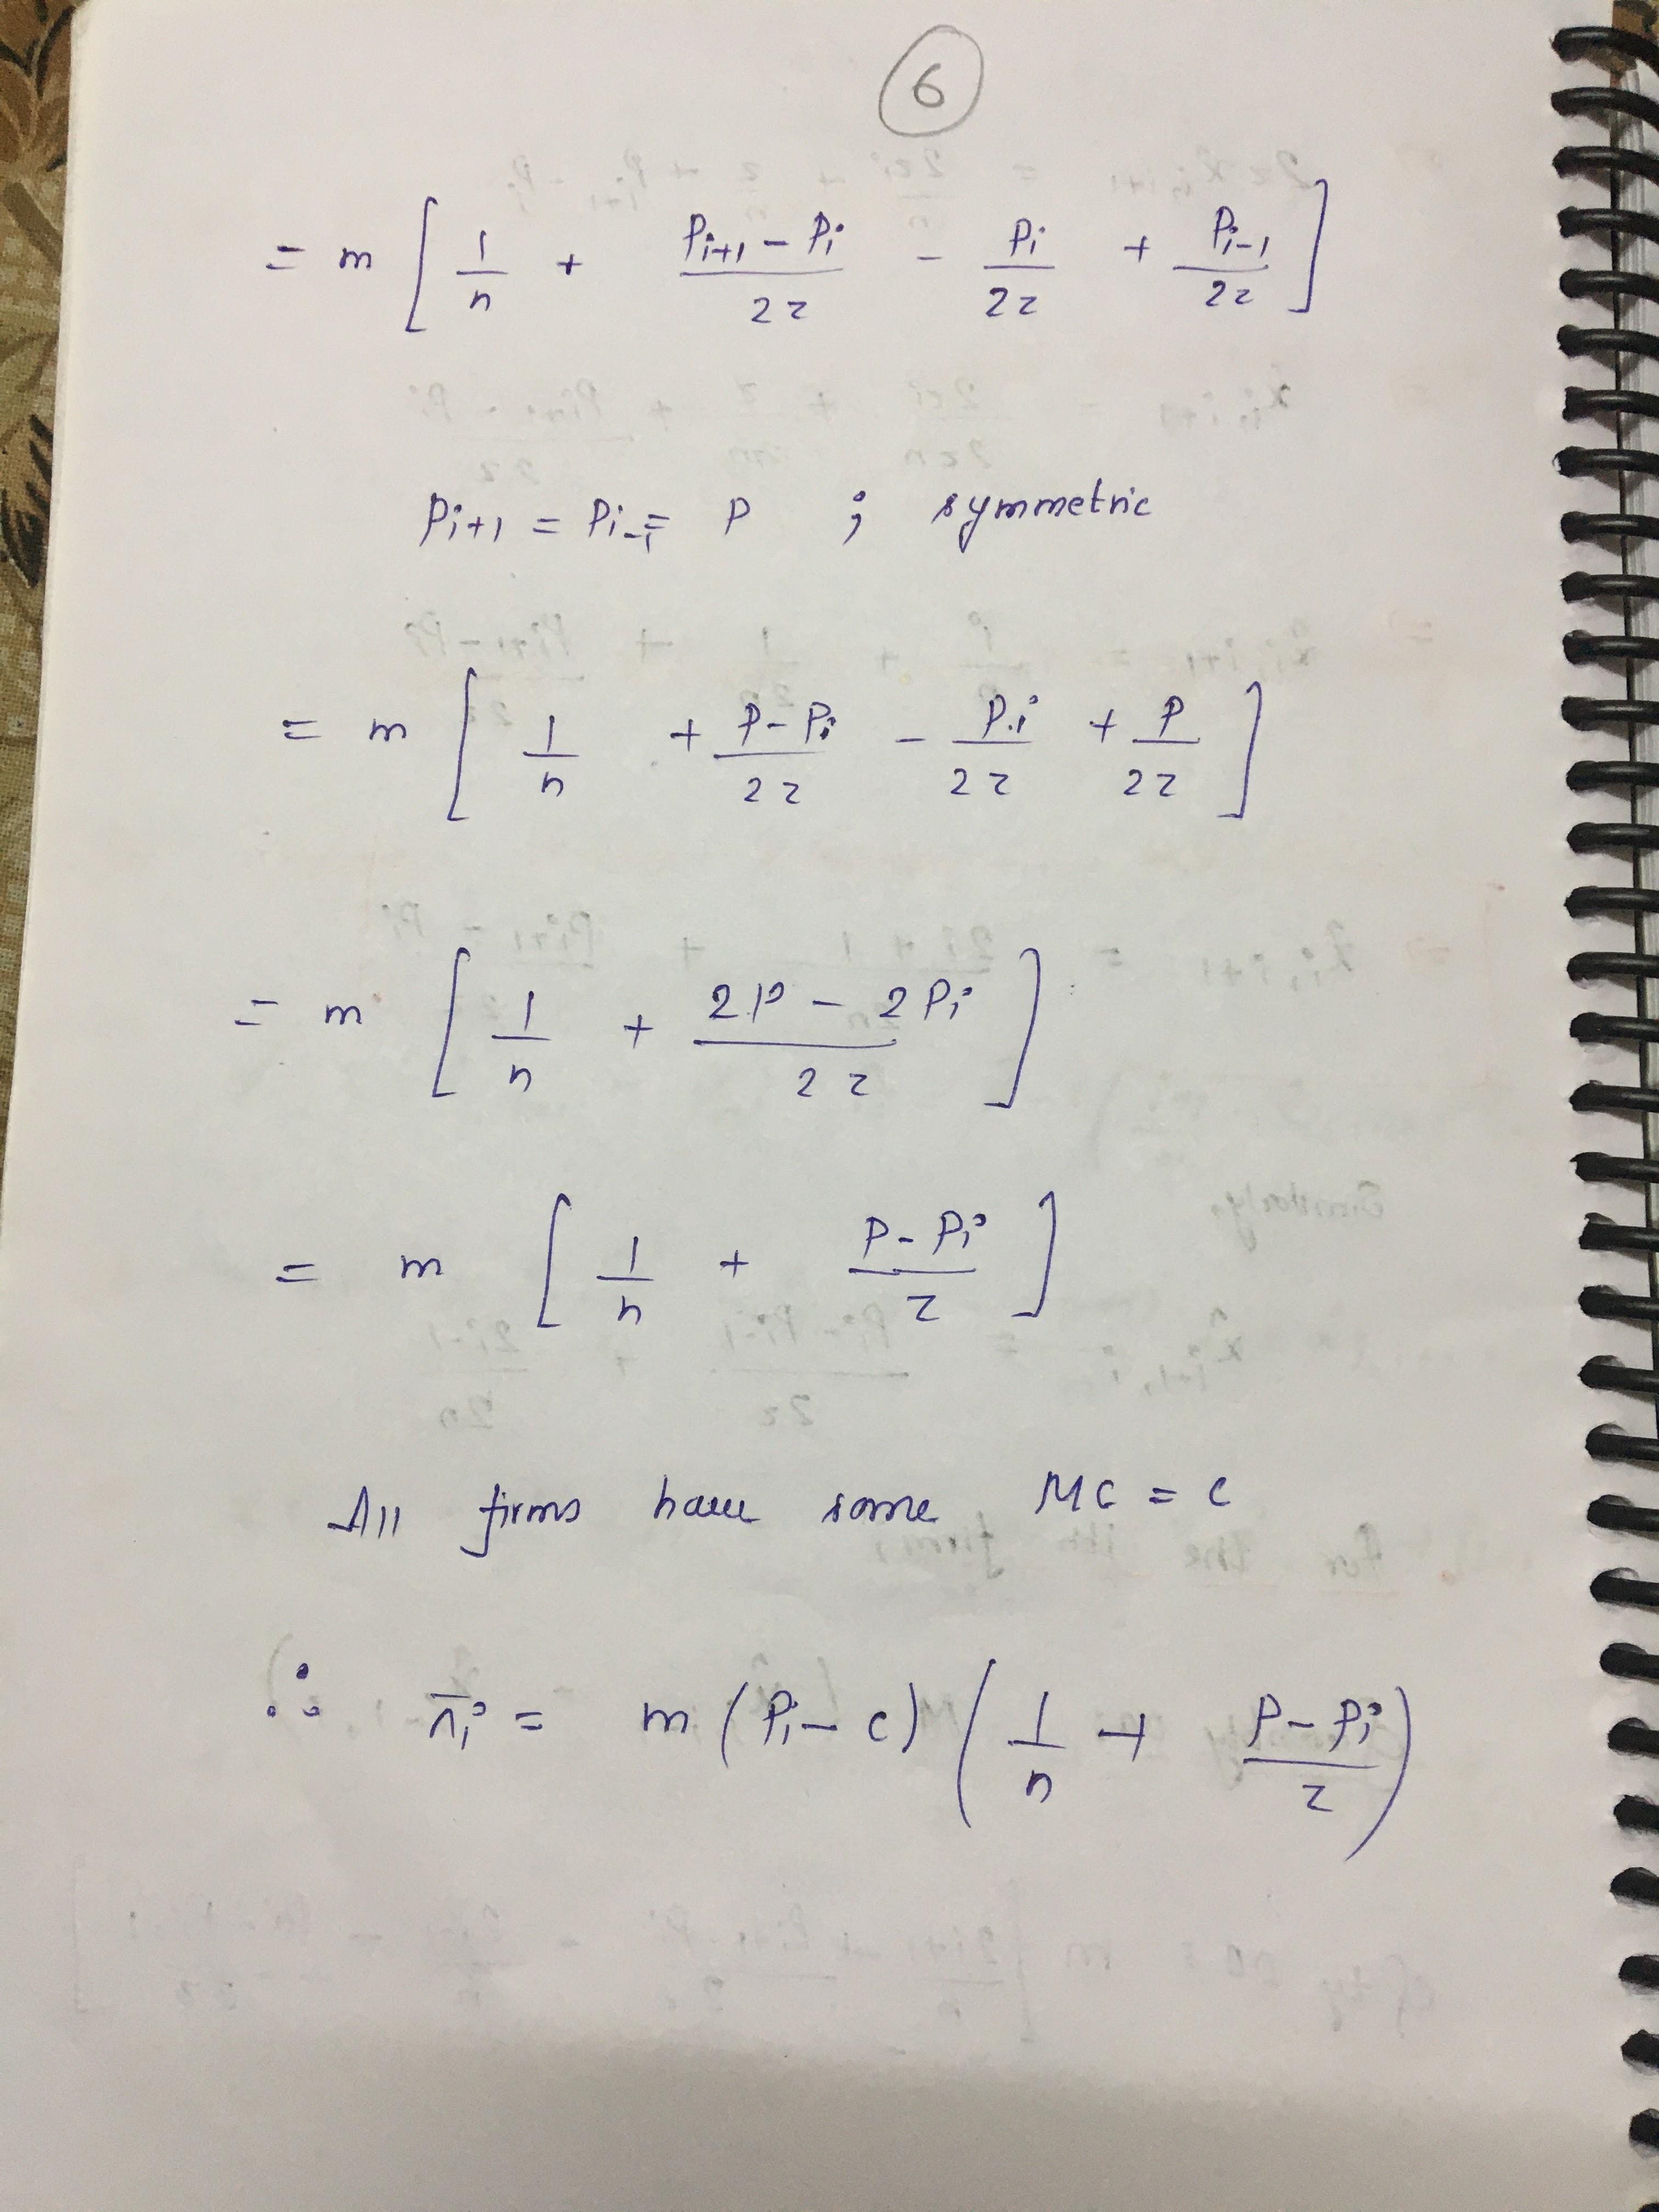 6
= m [ 1/n + (Pi+1 - Pi)/2z - Pi/2z + Pi-1/2z ]
Pi+1 = Pi-1 = P ; symmetric
= m [ 1/n + (P - Pi)/2z - Pi/2z + P/2z ]
= m [ 1/n + (2P - 2Pi)/2z ]
= m [ 1/n + (P - Pi)/z ]
All firms have same MC = c
∴ πi = m (Pi - c) ( 1/n + (P - Pi)/z )